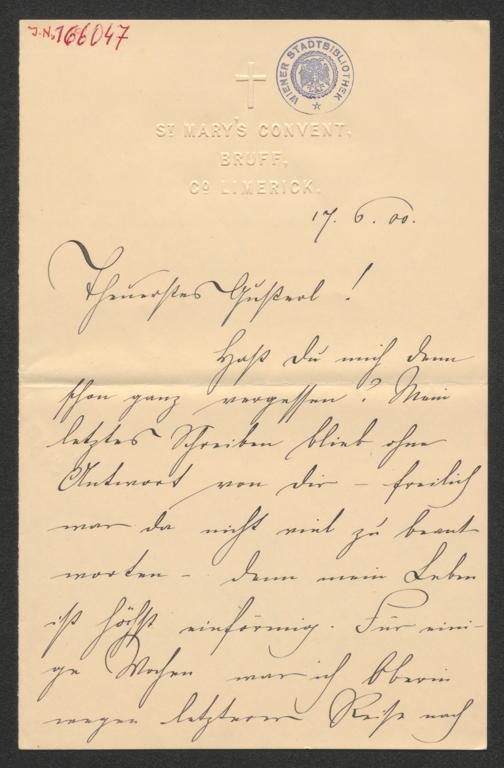 J.N. 166047
WIENER STADTBIBLIOTHEK
ST MARY'S CONVENT,
BRUFF,
CO LIMERICK.
17. 6. 00.
Theuerstes Gusterl!
Hast Du mich denn
schon ganz vergessen? Mein
letztes Schreiben blieb ohne
Antwort von Dir – freilich
war da nicht viel zu beant
worten – denn mein Leben
ist höchst einförmig. Für eini-
ge Wochen war ich Oberin
wegen letzterer Reise nach